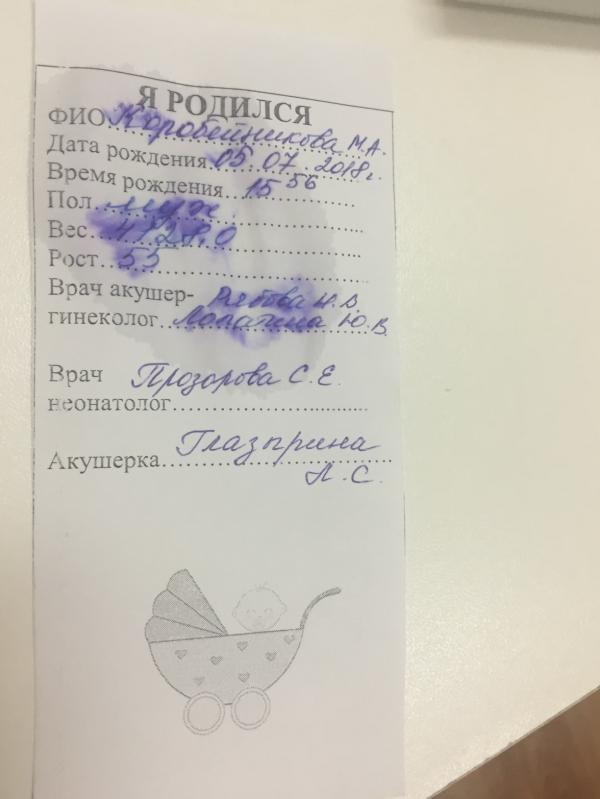 Я РОДИЛСЯ
ФИО Коробейникова М.А.
Дата рождения 05.07.2018г.
Время рождения 15 56
Пол муж
Вес 4128,0
Рост 53
Врач акушер- Ю.В.
гинеколог Лопатина Ю.В.
Врач Прозорова С.Е.
неонатолог
Акушерка Глазырина
Л.С.